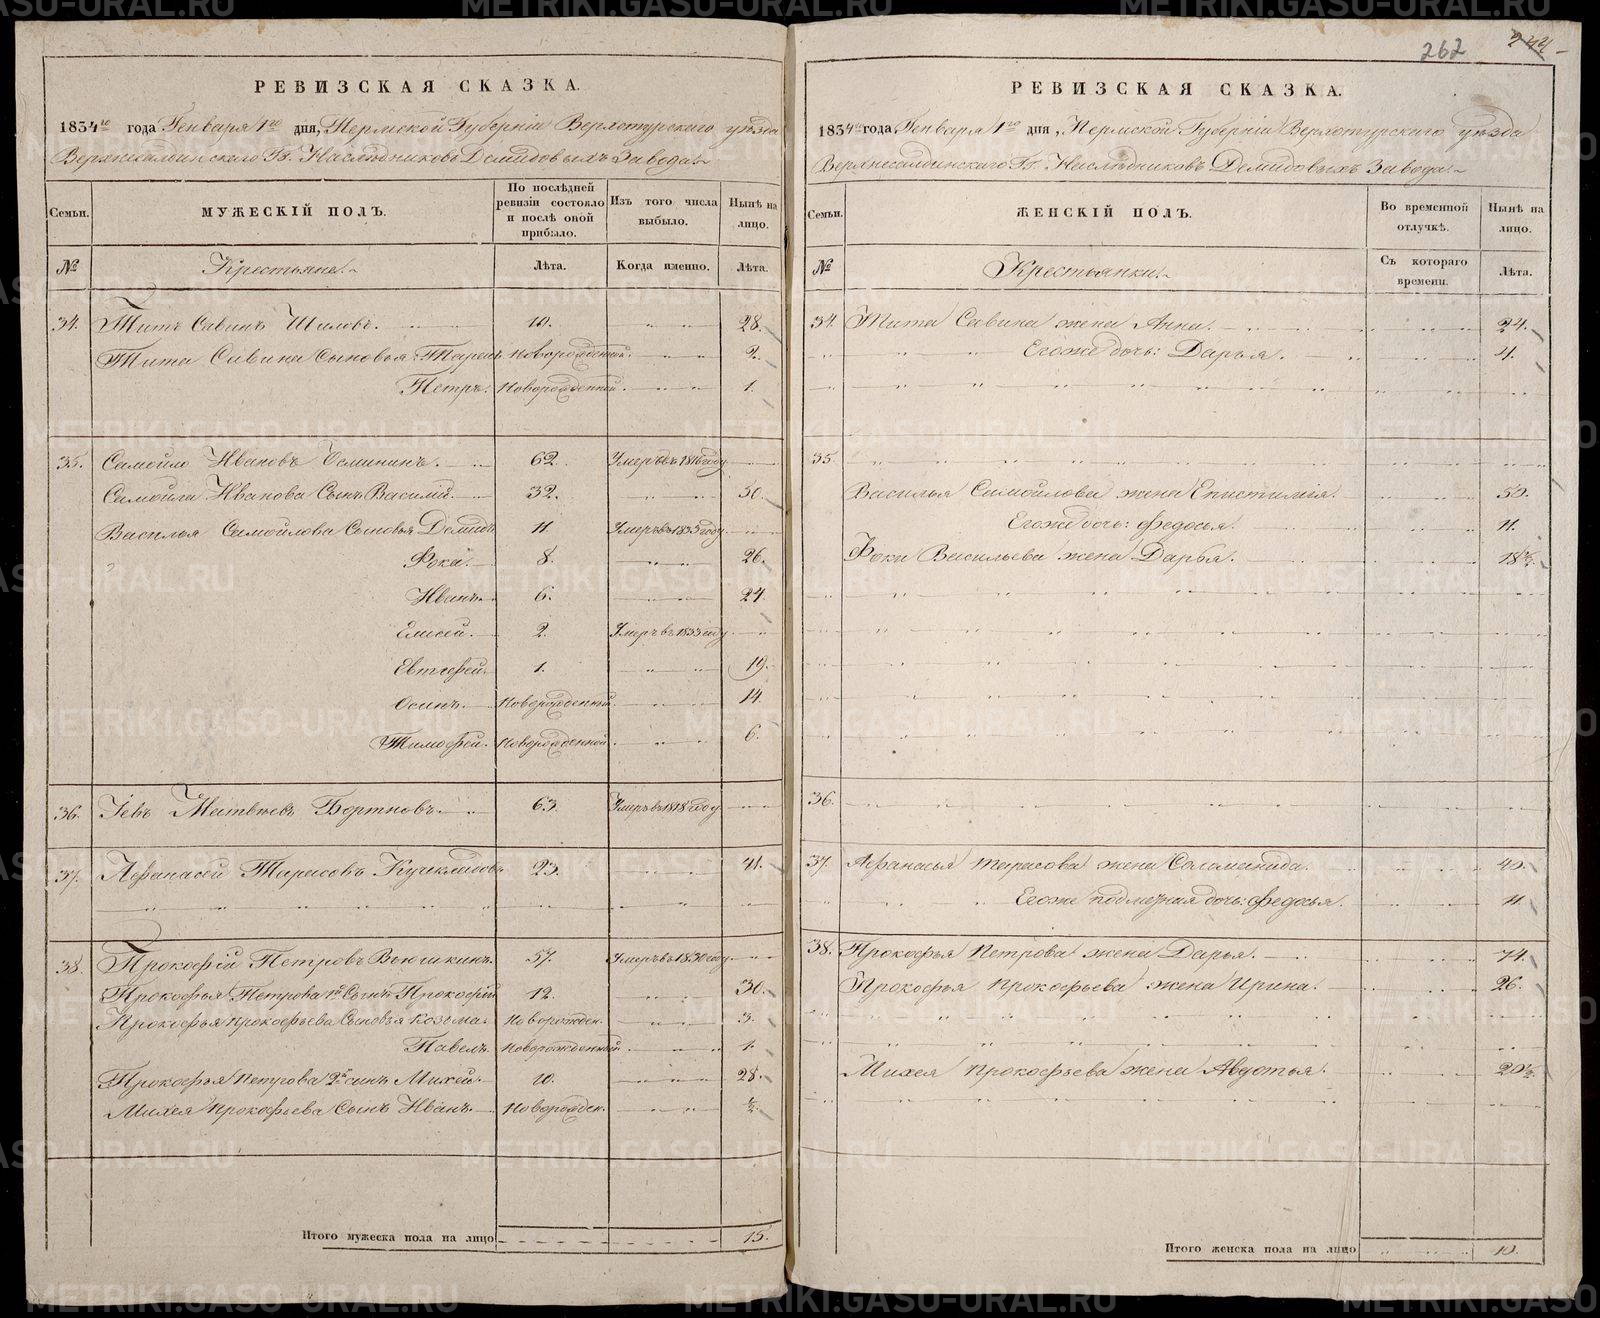 262 244
РЕВИЗСКАЯ СКАЗКА.
1834го года Генваря 1го дня, Пермской Губерніи Верхотурскаго уѣзда
Верхнесалдинскаго Гг. Наслѣдниковъ Демидовыхъ Завода.
Семьи. МУЖЕСКІЙ ПОЛЪ. По послѣдней ревизіи состояло и послѣ оной прибыло. Изъ того числа выбыло. Нынѣ на лицо.
№ Крестьяне. Лѣта. Когда именно. Лѣта.
34. Титъ Савинъ Шиловъ. 10. 28.
Тита Савина Сыновья: Тарасъ Новорожденной. 2.
Петръ. Новорожденной. 1.
35. Самойло Ивановъ Осининъ. 62. Умеръ въ 1816 году
Самойла Иванова Сынъ Василій. 32. 50.
Василья Самойлова Сыновья Демидъ 11. Умеръ въ 1835 году
Фока. 8. 26.
Иванъ. 6. 24.
Елисей. 2. Умеръ въ 1833 году
Евтифей. 1. 19.
Осипъ. Новорожденный. 14.
Тимофей. Новорожденной. 6.
36. Іевъ Матвѣевъ Бортновъ. 63. Умеръ въ 1818 году
37. Афанасей Тарасовъ 23. 41.
38. Прокофій Петровъ Вьюшкинъ. 57. Умеръ въ 1830 году
Прокофья Петрова 1й Сынъ Прокофій 12. 30.
Прокофья Прокофьева Сыновья Козьма. Новорожден. 3.
Павелъ. Новорожденный. 1.
Прокофья Петрова 2й сынъ Михей. 10. 28.
Михея Прокофьева Сынъ Иванъ. Новорожден. ½
Итого мужеска пола на лицо 15.
РЕВИЗСКАЯ СКАЗКА.
1834го года Генваря 1го дня, Пермской Губерніи Верхотурскаго уѣзда
Верхнесалдинскаго Гг. Наслѣдниковъ Демидовыхъ Завода.
Семьи. ЖЕНСКІЙ ПОЛЪ. Во временной отлучкѣ. Нынѣ на лицо.
№ Крестьянки. Съ котораго времени. Лѣта.
34. Тита Савина жена Анна. 24.
Егоже дочь: Дарья. 4.
35.
Василья Самойлова жена Епистимія. 50.
Егоже дочь: Федосья. 11.
Фоки Васильева жена Дарья. 18½.
36.
37. Афанасья Тарасова жена Саламанида. 40.
Егоже дочь: Федосья. 11.
38. Прокофья Петрова жена Дарья. 74.
Прокофья Прокофьева жена Ирина. 26.
Михея Прокофьева жена Авдотья. 20½.
Итого женска пола на лицо 10.
METRIKI.GASO-URAL.RU